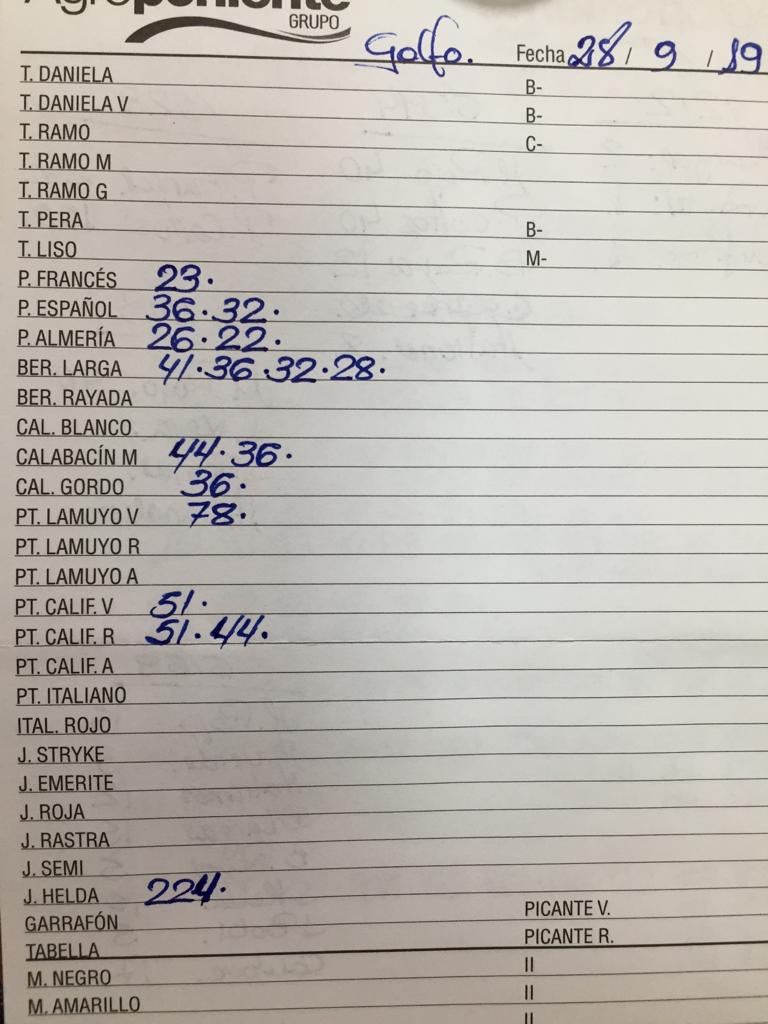 Agroponiente
GRUPO
Golfo. Fecha 28 / 9 / 19
T. DANIELA B-
T. DANIELA V B-
T. RAMO C-
T. RAMO M
T. RAMO G
T. PERA B-
T. LISO M-
P. FRANCÉS 23.
P. ESPAÑOL 36. 32.
P. ALMERÍA 26. 22.
BER. LARGA 41. 36 32. 28.
BER. RAYADA
CAL. BLANCO
CALABACÍN M 44. 36.
CAL. GORDO 36.
PT. LAMUYO V 78.
PT. LAMUYO R
PT. LAMUYO A
PT. CALIF. V 51.
PT. CALIF. R 51. 44.
PT. CALIF. A
PT. ITALIANO
ITAL. ROJO
J. STRYKE
J. EMERITE
J. ROJA
J. RASTRA
J. SEMI
J. HELDA 224.
GARRAFÓN PICANTE V.
TABELLA PICANTE R.
M. NEGRO II
M. AMARILLO II
II